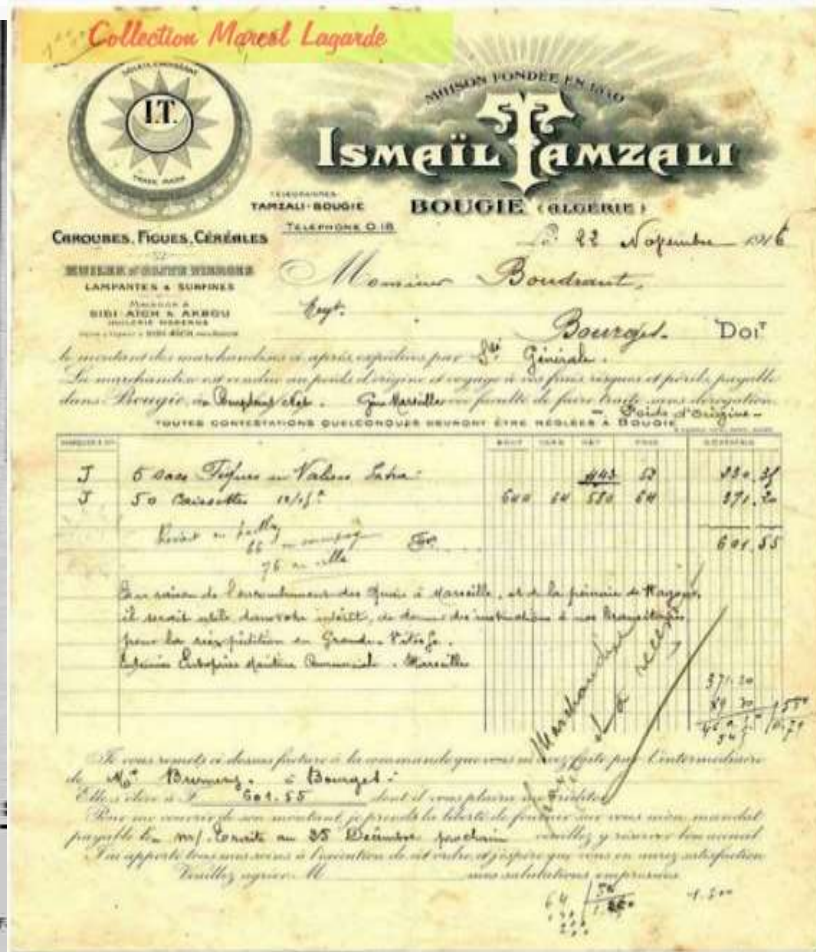 Collection Marcel Lagarde
MAISON FONDÉE EN
I.T.
TRADE MARK
ISMAÏL TAMZALI
TÉLÉGRAMMES
TAMZALI-BOUGIE
BOUGIE (ALGÉRIE)
TÉLÉPHONE 0.18
CAROUBES, FIGUES, CÉRÉALES
22 Novembre 1916
HUILES D'OLIVE VIERGES
LAMPANTES & SURFINES
Monsieur Boudrant,
MAISONS À
SIDI-AÏCH & AKBOU
HUILERIE MODERNE
Negt.
Bourges. DOIT
le montant des marchandises ci-après expédiées par Sté Générale.
La marchandise est vendue au poids d'origine et voyage à vos frais risques et périls, payable
dans Bougie, avec faculté de faire traite sans dérogation.
Poids d'Origine
TOUTES CONTESTATIONS QUELCONQUES DEVRONT ÊTRE RÉGLÉES À BOUGIE
BRUT TARE NET PRIX SOMMES
J 5 sacs Figues en Valises Extra 443 52 230.35
J 50 Caissettes 640 64 580 64 371.20
601.55
En raison de l'encombrement des Quais à Marseille, et de la pénurie de Wagons,
il serait utile, dans votre intérêt, de donner des instructions à nos transitaires
pour la réexpédition en Grande Vitesse.
Marseille
Marchandise
371.20
Je vous remets ci-dessus facture à la commande que vous m'avez faite par l'intermédiaire
de Mr à Bourges
Elle s'élève à F 601.55 dont il vous plaira me créditer
Pour me couvrir de son montant, je prends la liberté de fournir sur vous mon mandat
payable le m/ Traite au 25 Décembre prochain veuillez y réserver bon accueil
J'ai apporté tous mes soins à l'exécution de cet ordre, et j'espère que vous en aurez satisfaction
Veuillez agréer M mes salutations empressées